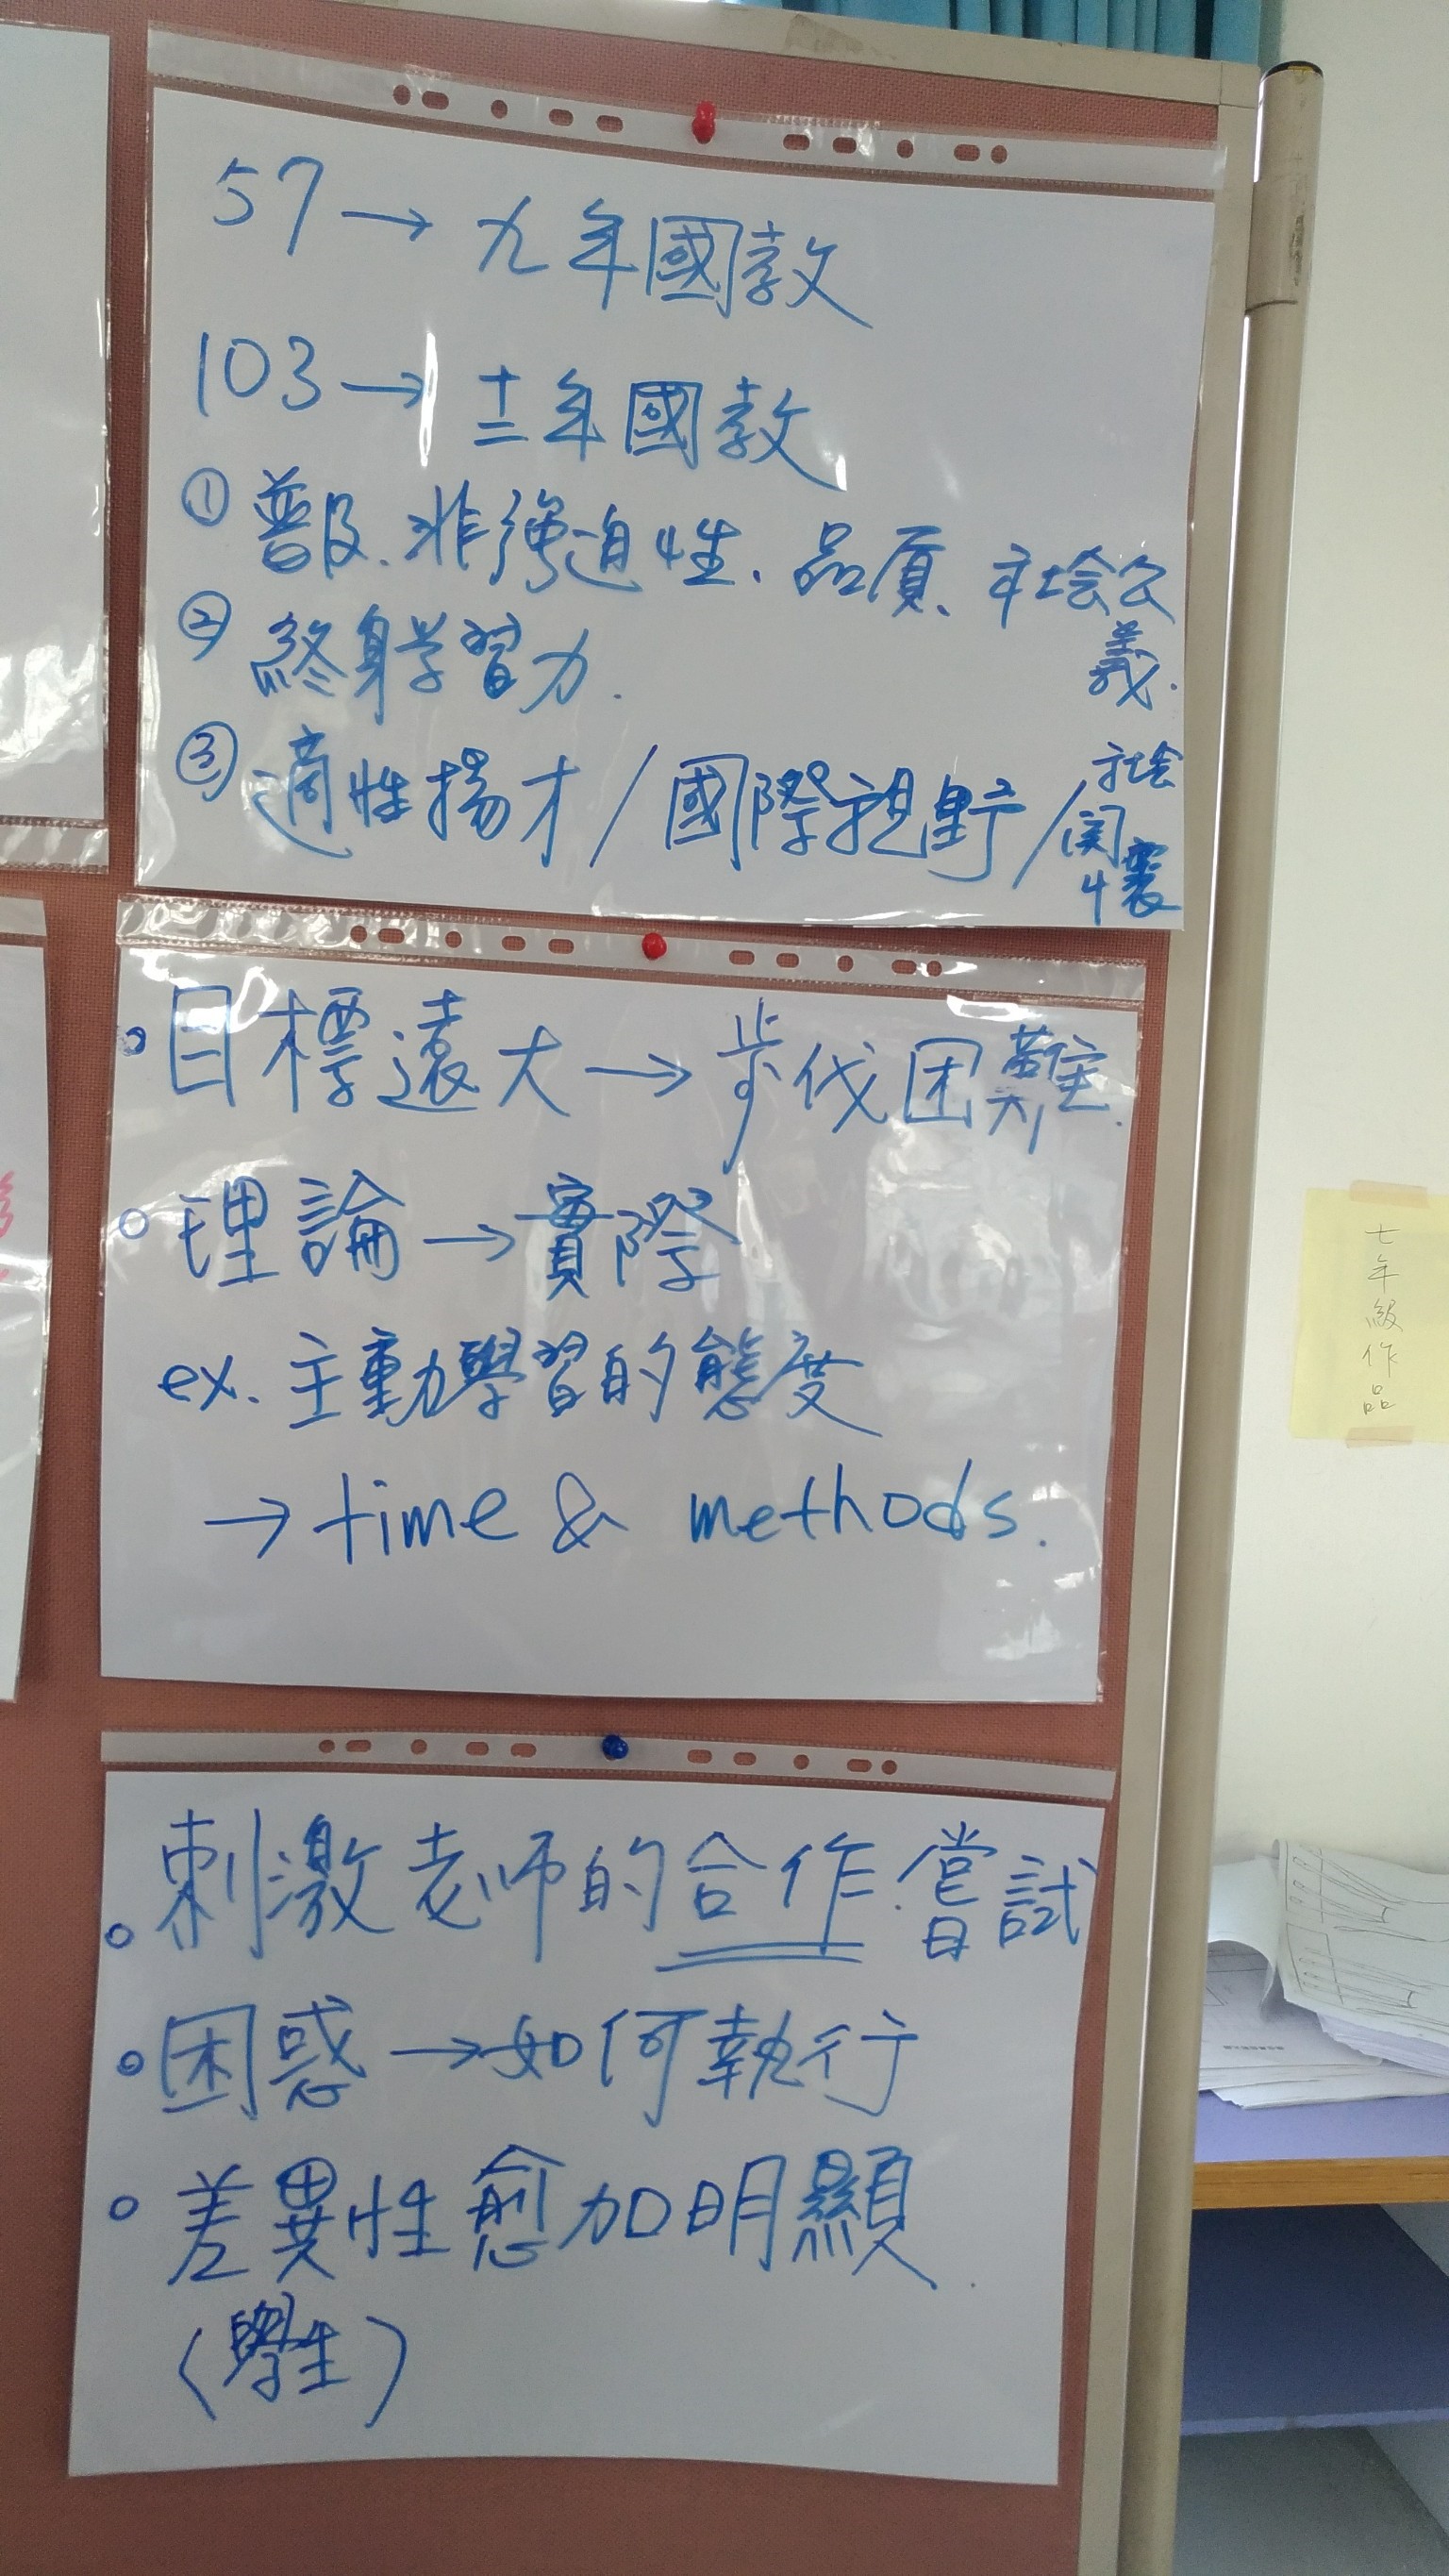 57→九年國教
103→十二年國教
①普及、非強迫性、品質、社会公義.
②終身学習力.
③適性揚才/國際視野/社会関懷
。目標遠大→步伐困難.
。理論→實際
ex. 主動學習的態度
→time & methods.
。刺激老师的合作.嘗試
。困惑→如何執行
。差異性愈加明顯.
(學生)
七年級作品